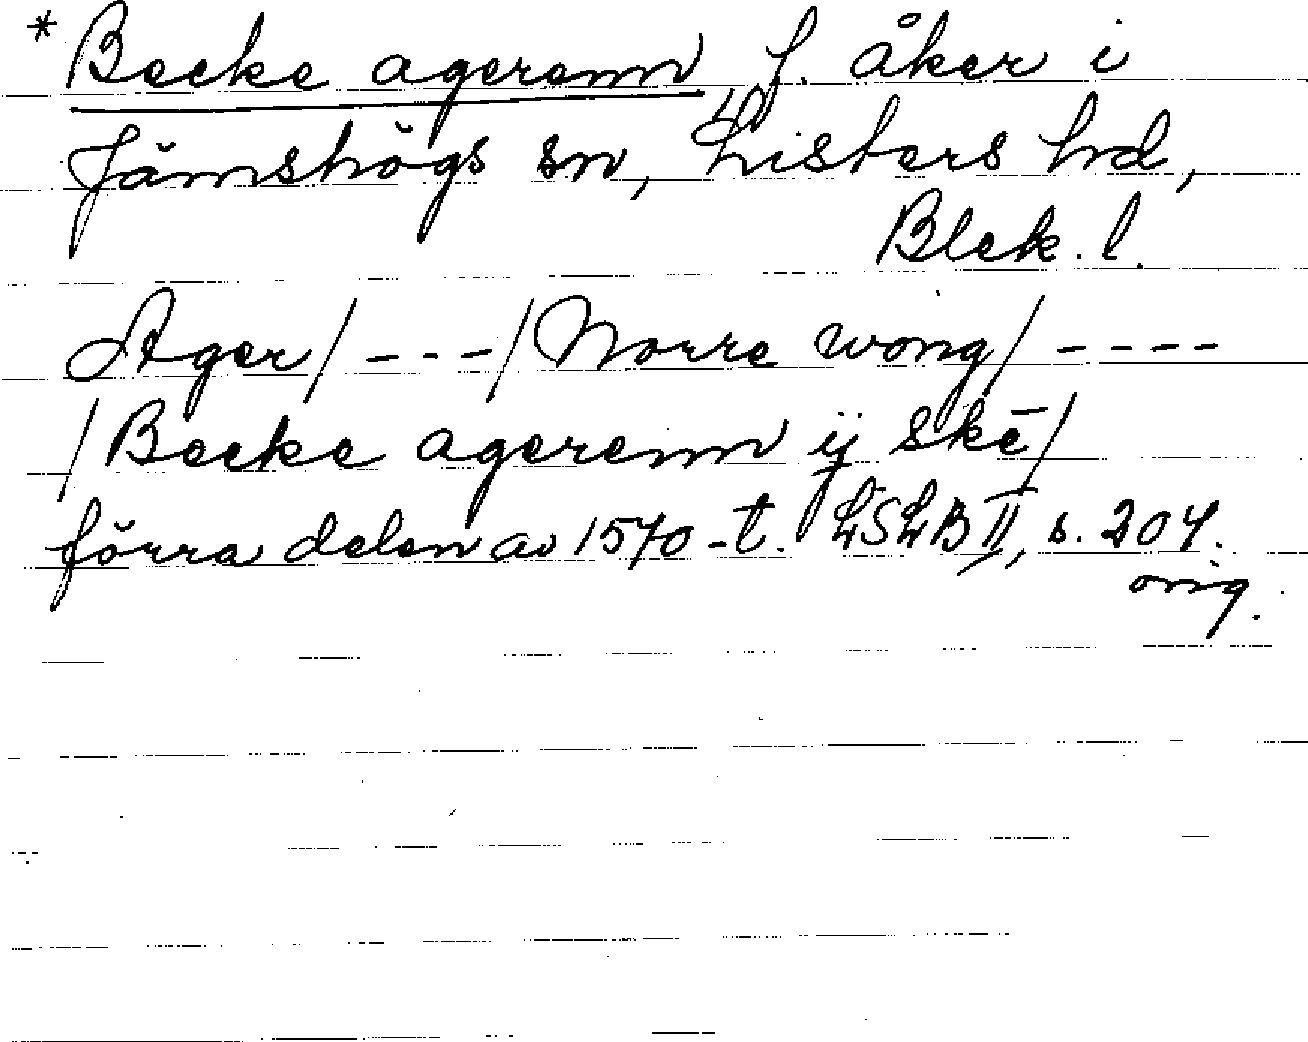 * Becke agerenn, f. åker i
Jämshögs sn, Listers hd,
Blek. l.
Ager/---/Norre wong/----
/Becke agerenn ij skē/
förra delen av 1570-t. LSLB II, s. 204.
orig.